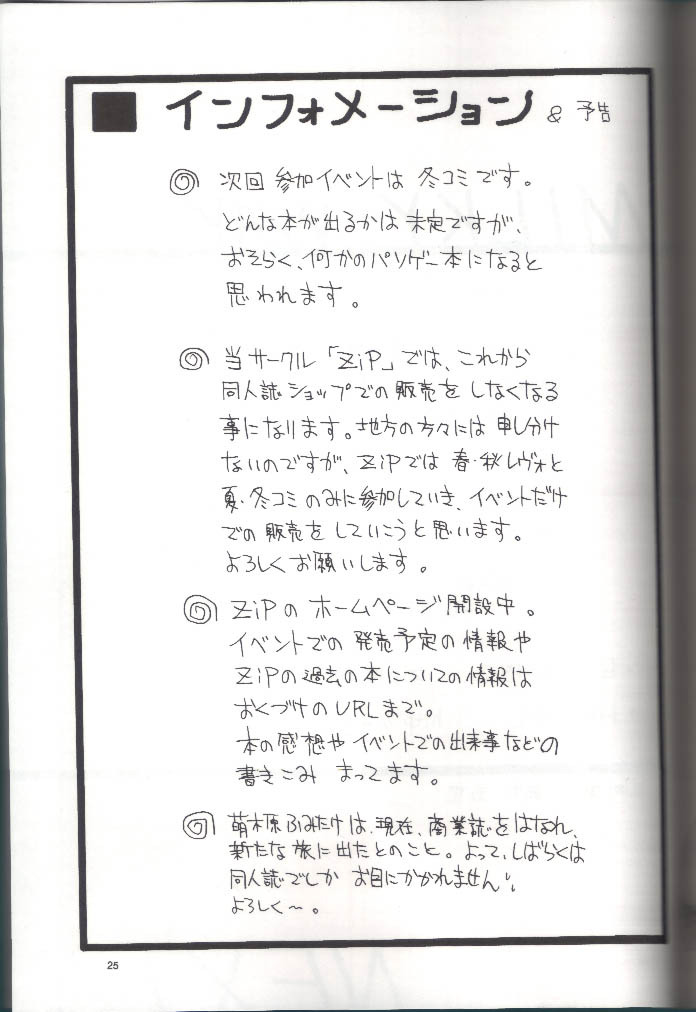 ■ インフォメーション & 予告
◎ 次回 参加イベントは 冬コミです。
どんな本が出るかは 未定ですが、
おそらく、何かのパソゲー本になると
思われます。
◎ 当サークル「ZiP」では、これから
同人誌ショップでの 販売を しなくなる
事になります。地方の方々には 申し分け
ないのですが、ZiPでは 春・秋レヴォと
夏・冬コミ のみに参加していき、イベントだけ
での 販売を していこうと思います。
よろしく お願いします。
◎ ZiPの ホームページ開設中。
イベントでの 発売予定の情報や
ZiPの過去の本についての情報は
おくづけのURLまで。
本の感想や イベントでの出来事などの
書きこみ まってます。
◎ 萌木原ふみたけは、現在、商業誌をはなれ、
新たな旅に出たとのこと。よって、しばらくは
同人誌でしか お目にかかれません!、
よろしく〜。
25